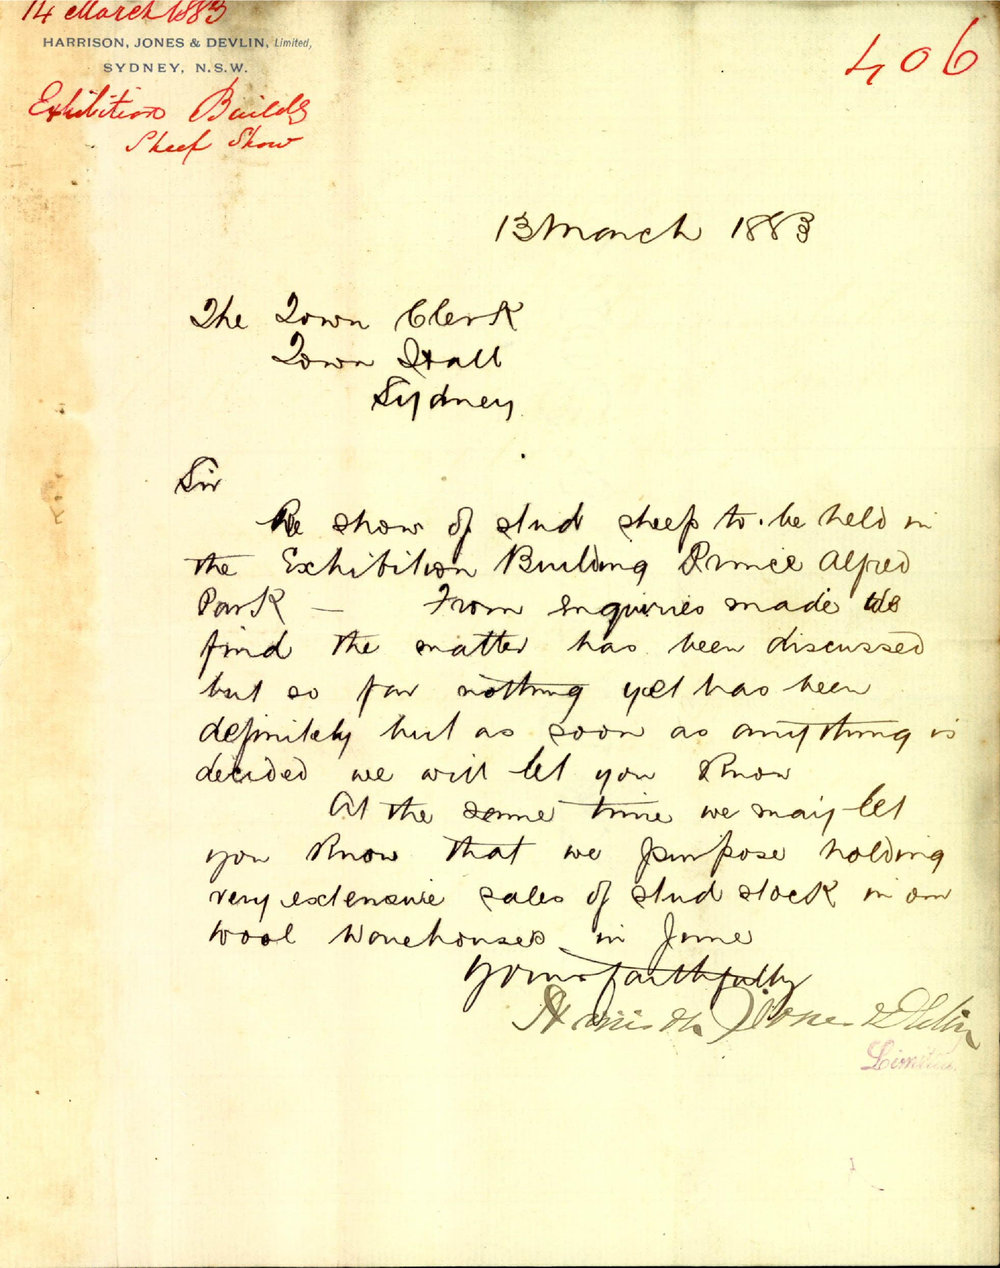 14 March 1883
HARRISON, JONES & DEVLIN, Limited,
SYDNEY, N.S.W.
406
Exhibition Buildg
Sheep Show
13 March 1883
The Town Clerk
Town Hall
Sydney
Sir
Re show of stud sheep to be held in
the Exhibition Building Prince Alfred
Park — From enquiries made we
find the matter has been discussed
but so far nothing yet has been
definitely but as soon as anything is
decided we will let you know
At the same time we may let
you know that we purpose holding
very extensive sales of stud stock in our
wool warehouses in June
Yours faithfully
Harrison Jones & Devlin
Limited